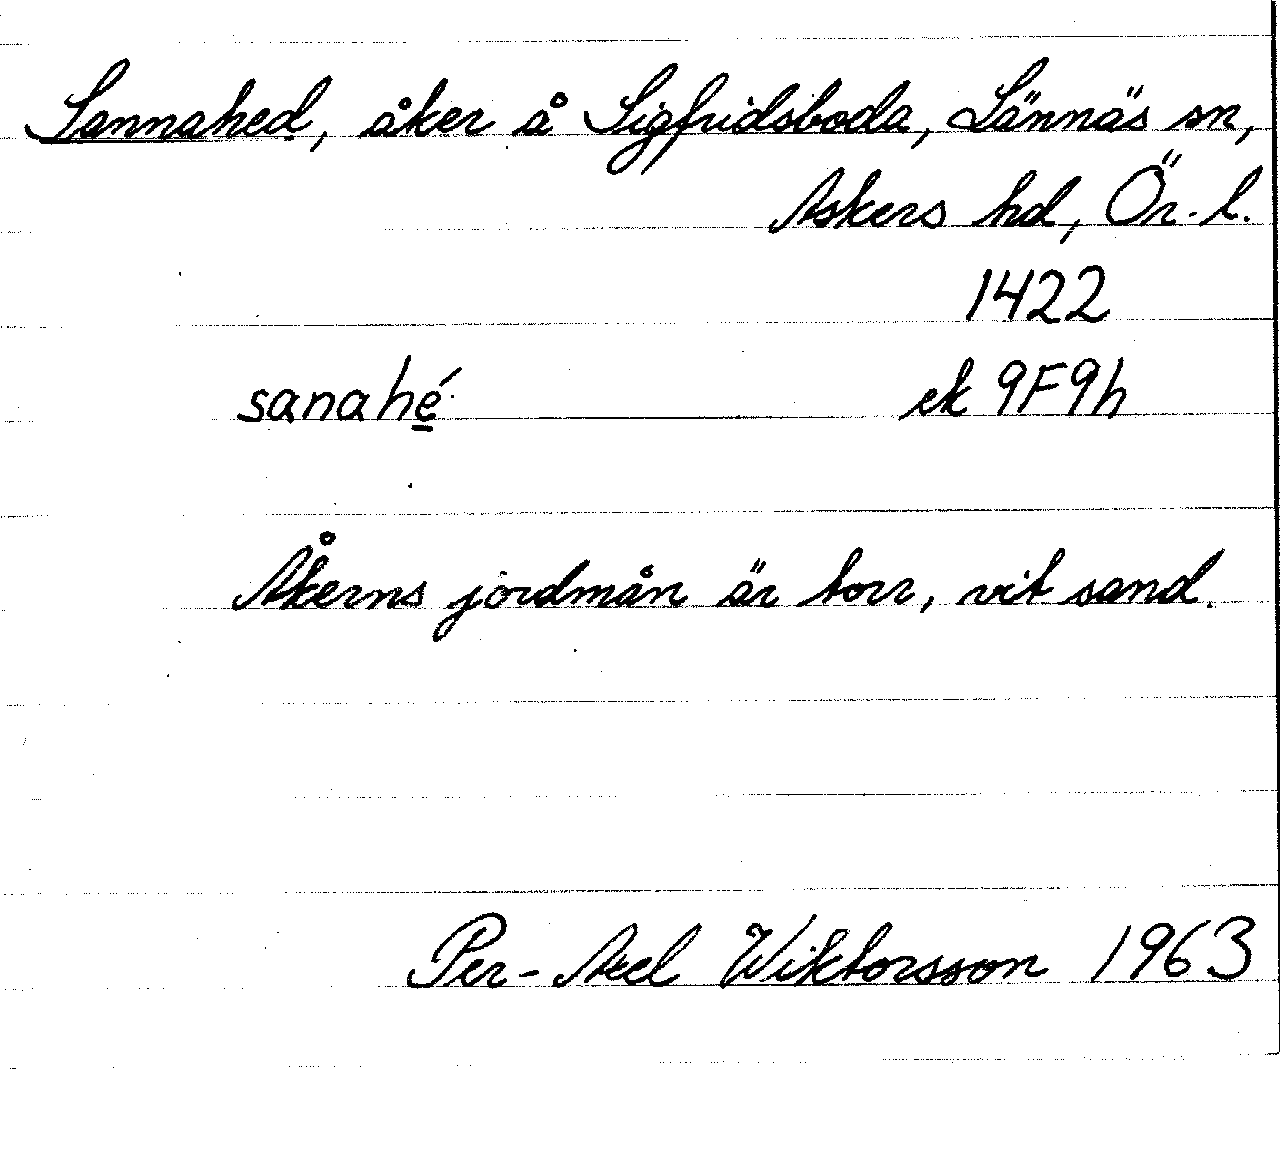 Sannahed, åker å Sigfridsboda, Lännäs sn,
Askers hd, Ör. l.
1422
sanahé ek 9F9h
Åkerns jordmån är torr, vit sand.
Per-Axel Wiktorsson 1963